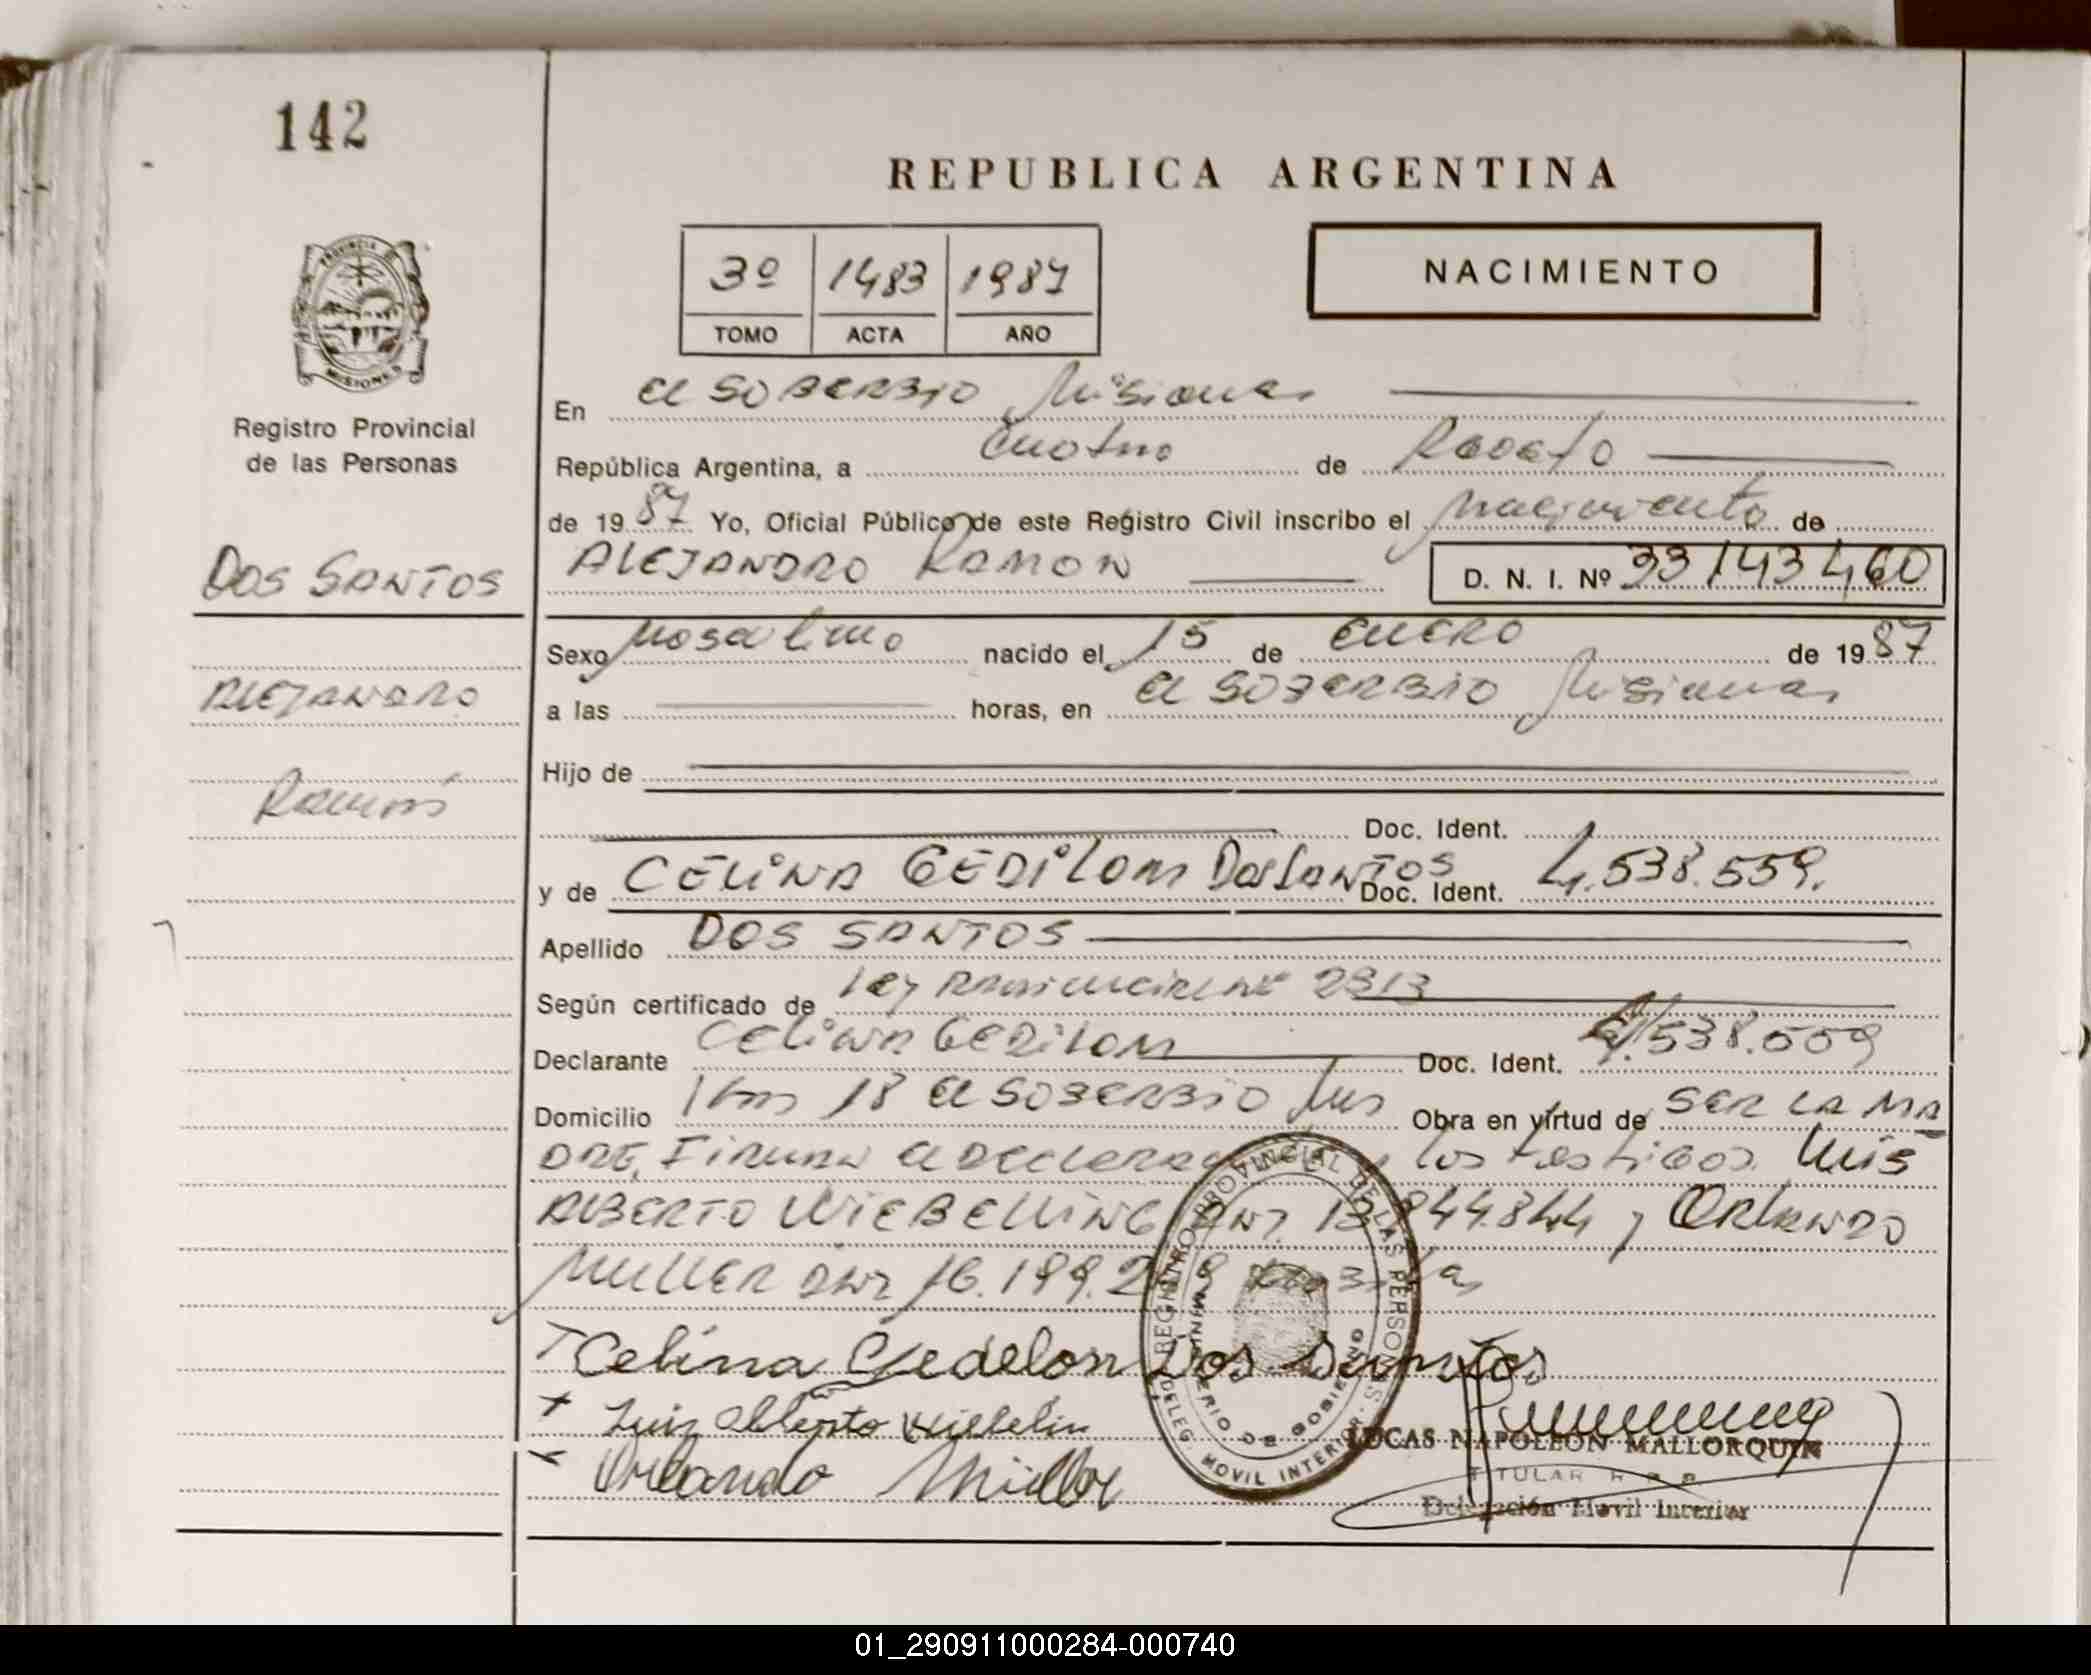 142
REPUBLICA ARGENTINA
3º 1483 1987
TOMO ACTA AÑO
NACIMIENTO
PROVINCIA DE
MISIONES
Registro Provincial
de las Personas
En El SOBERBIO Misiones
República Argentina, a Cuatro de Agosto
de 1987 Yo, Oficial Público de este Registro Civil inscribo el nacimiento de
DOS SANTOS
ALEJANDRO RAMON D. N. I. Nº 33/143460
Sexo Masculino nacido el 15 de ENERO de 1987
ALEJANDRO
a las horas, en El SOBERBIO Misiones
Hijo de
Ramón
Doc. Ident.
y de CELINA GEDILOM Dos SANTOS Doc. Ident. 4.538.559.
Apellido DOS SANTOS
Según certificado de ley Nº 2313
Declarante CELINA GEDILOM Doc. Ident. 4.538.559
Domicilio Km 18 El SOBERBIO Mis Obra en virtud de SER LA MA
DRE, Firman los testigos Luis
ALBERTO WIEBELLING DNI. 844.844 y ORLANDO
MULLER DNI 16.199.2
Celina Gedelon Dos Santos
Luiz Alberto Wiebelin
Orlando Müller
REGISTRO PROVINCIAL DE LAS PERSONAS
MINISTERIO DE GOBIERNO
DELEG. MOVIL INTERIOR
LUCAS NAPOLEON MALLORQUIN
TITULAR
Delegación Movil Interior
01_290911000284-000740